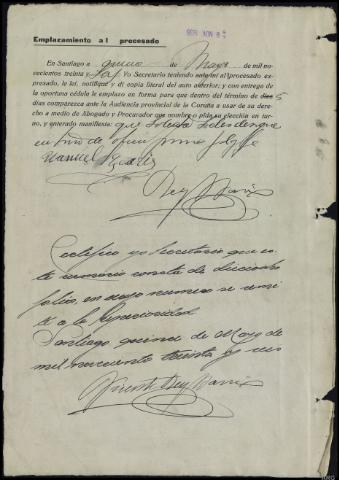 Emplazamiento al procesado
En Santiago a quince de Mayo de mil no-
vecientos treinta y seis Yo Secretario teniendo ante mi al procesado ex-
presado, le leí, notifiqué y dí copia literal del auto anterior; y con entrega de
la oportuna cédula le emplazo en forma para que dentro del término de diez 5
días comparezca ante la Audiencia provincial de la Coruña a usar de su dere-
cho a medio de Abogado y Procurador que nombre o pida su elección en tur-
no, y enterado manifiesta: que solicita se le designen
en turno de oficio y firma doy fe
Manuel
Rey
Certifico yo Secretario que es-
te sumario consta de dieciocho
folios, en cuyo numero se remi-
te a la Superioridad
Santiago quince de Mayo de
mil novecientos treinta y seis
Rey